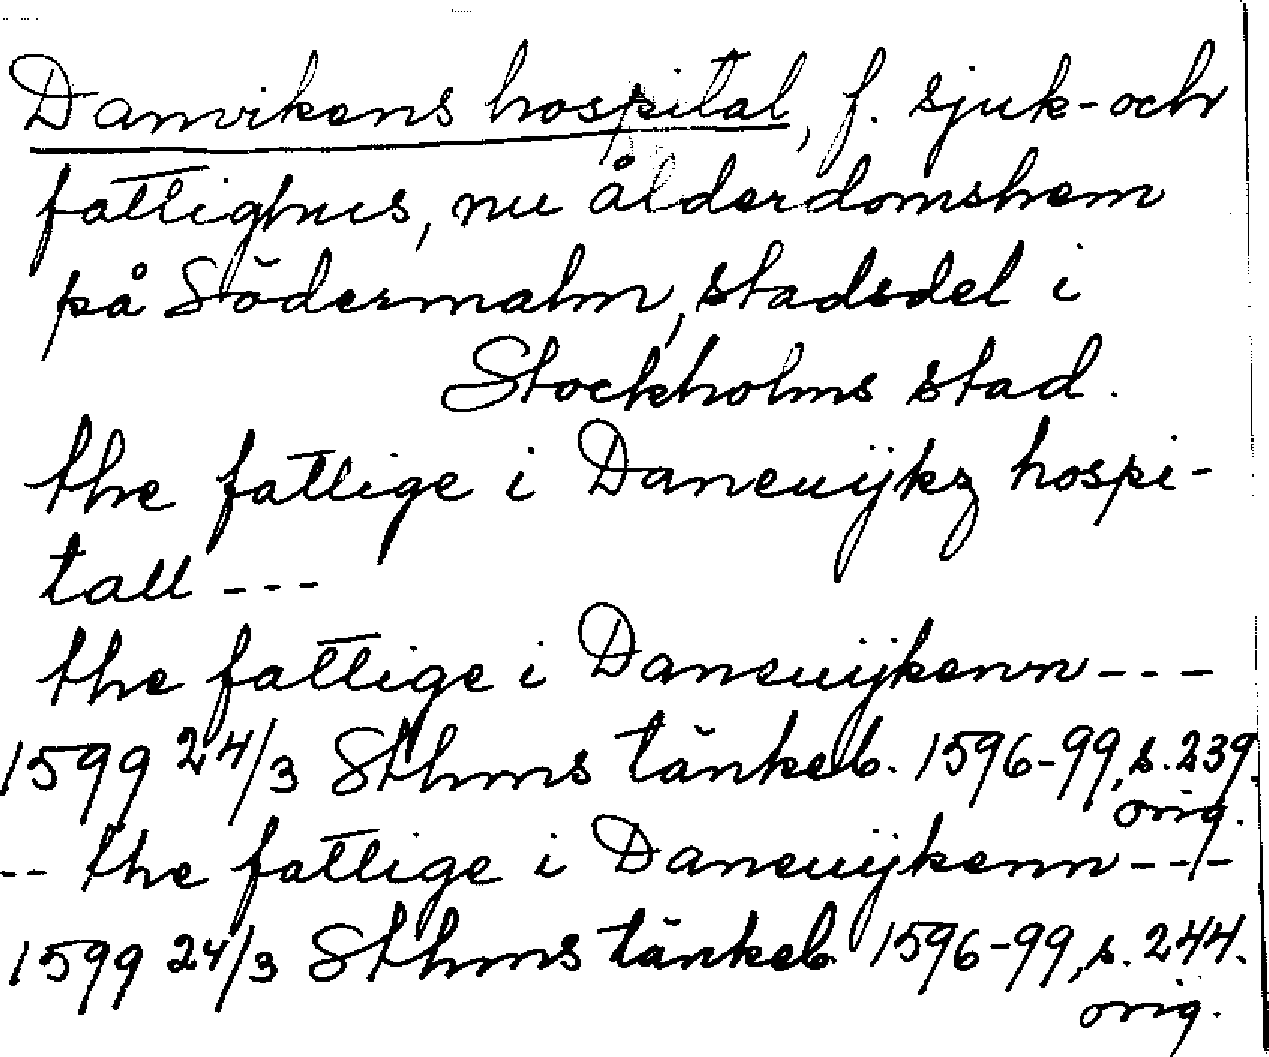 Danvikens hospital, f. sjuk- och
fattighus, nu ålderdomshem
på Södermalm, stadsdel i
Stockholms stad.
the fattige i Daneuijkz hospi-
tall ---
the fattige i Daneuijkenn ---
1599 24/3 Sthms tänkeb. 1596-99, s. 239.
orig.
-- the fattige i Daneuijkenn ---
1599 24/3 Sthms tänkeb. 1596-99, s. 244.
orig.